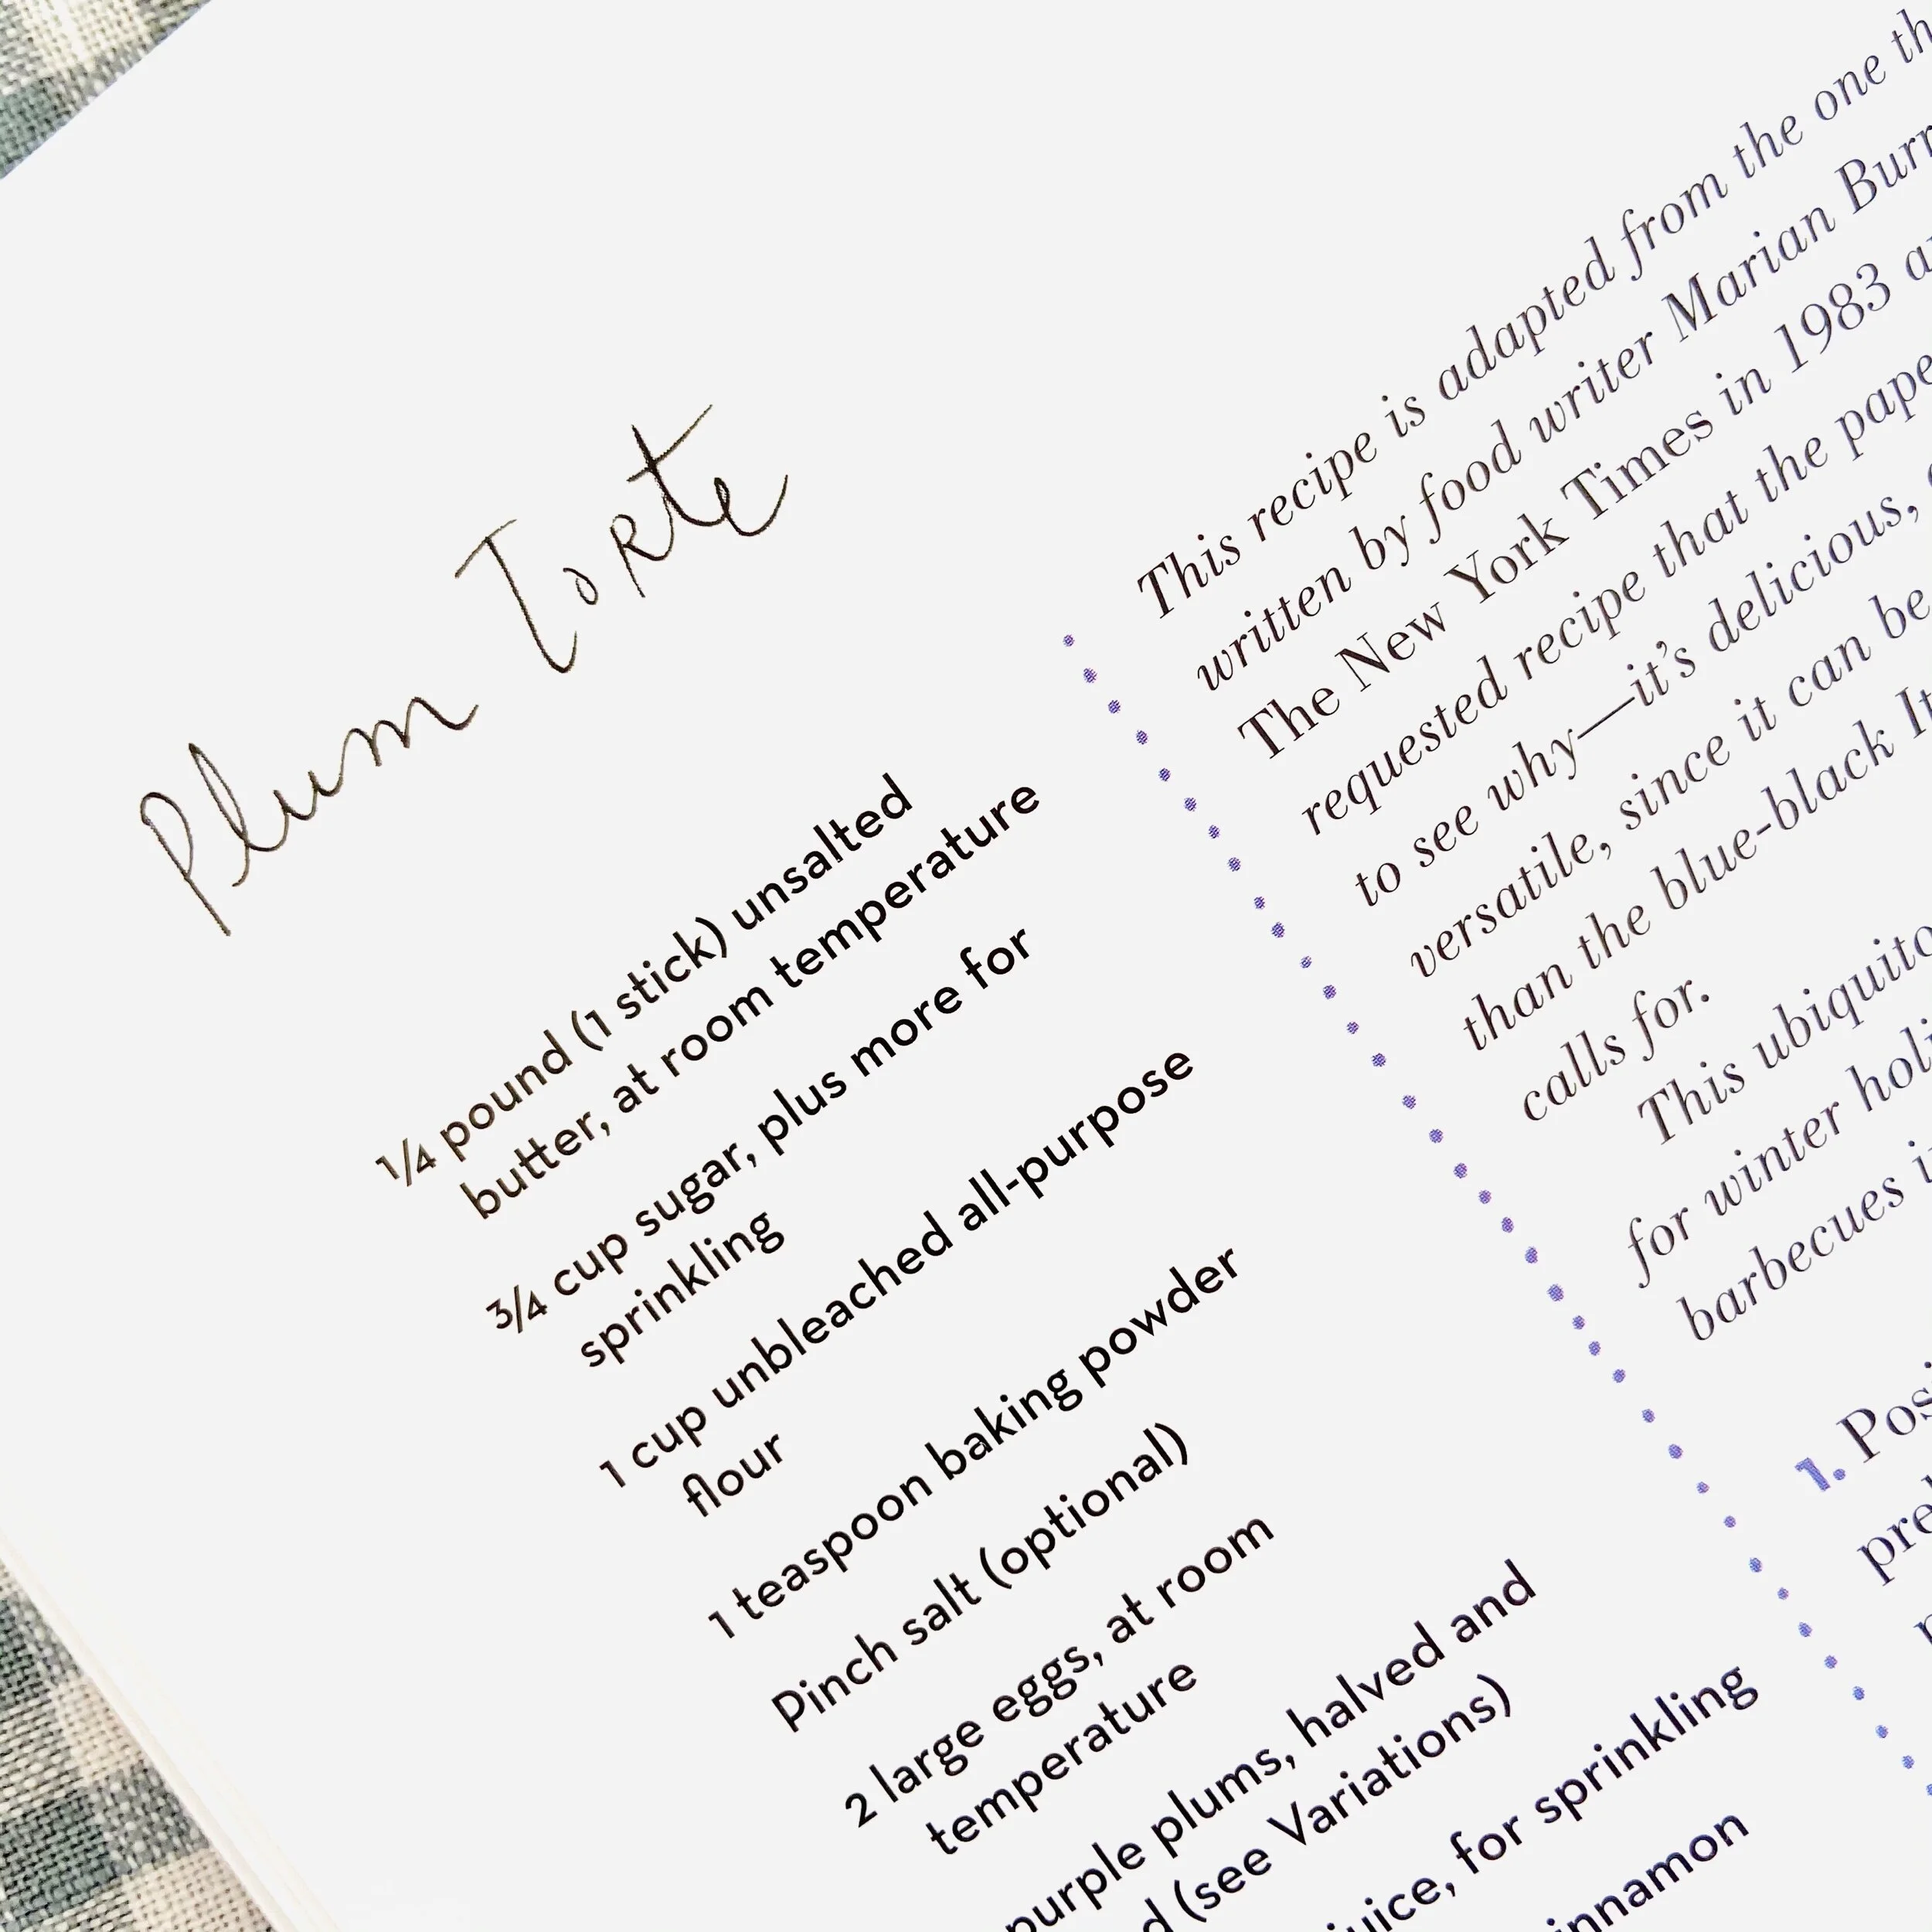 Plum Torte
1/4 pound (1 stick) unsalted
butter, at room temperature
3/4 cup sugar, plus more for
sprinkling
1 cup unbleached all-purpose
flour
1 teaspoon baking powder
Pinch salt (optional)
2 large eggs, at room
temperature
purple plums, halved and
(see Variations)
juice, for sprinkling
This recipe is adapted from the one
written by food writer Marian
The New York Times in 1983
requested recipe that the
to see why—it's delicious,
versatile, since it can be
than the blue-black
calls for.
This
for winter
barbecues
1.